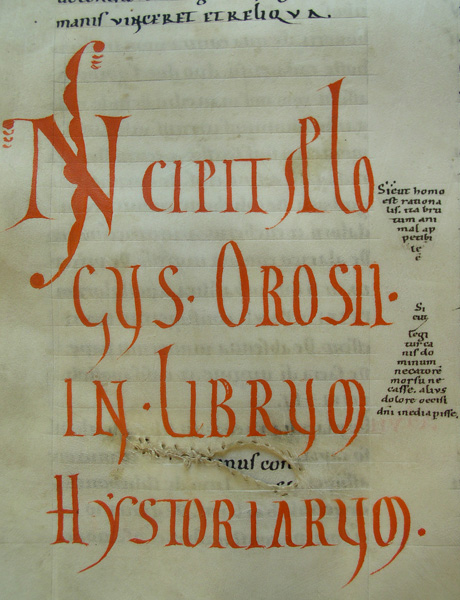 manis vinceret et reliqua.
INCIPIT PLO
GUS. OROSII.
IN. LIBRUM
HYSTORIARUM.
Sicut homo
est rationa
lis. ita bru
tum ani
mal ap
petibi
Si
cut
legi
tur ca
nis do
minum
necatorē
morsu ne
casse. alius
dolore occisi
dñi inedia pisse.
nus con